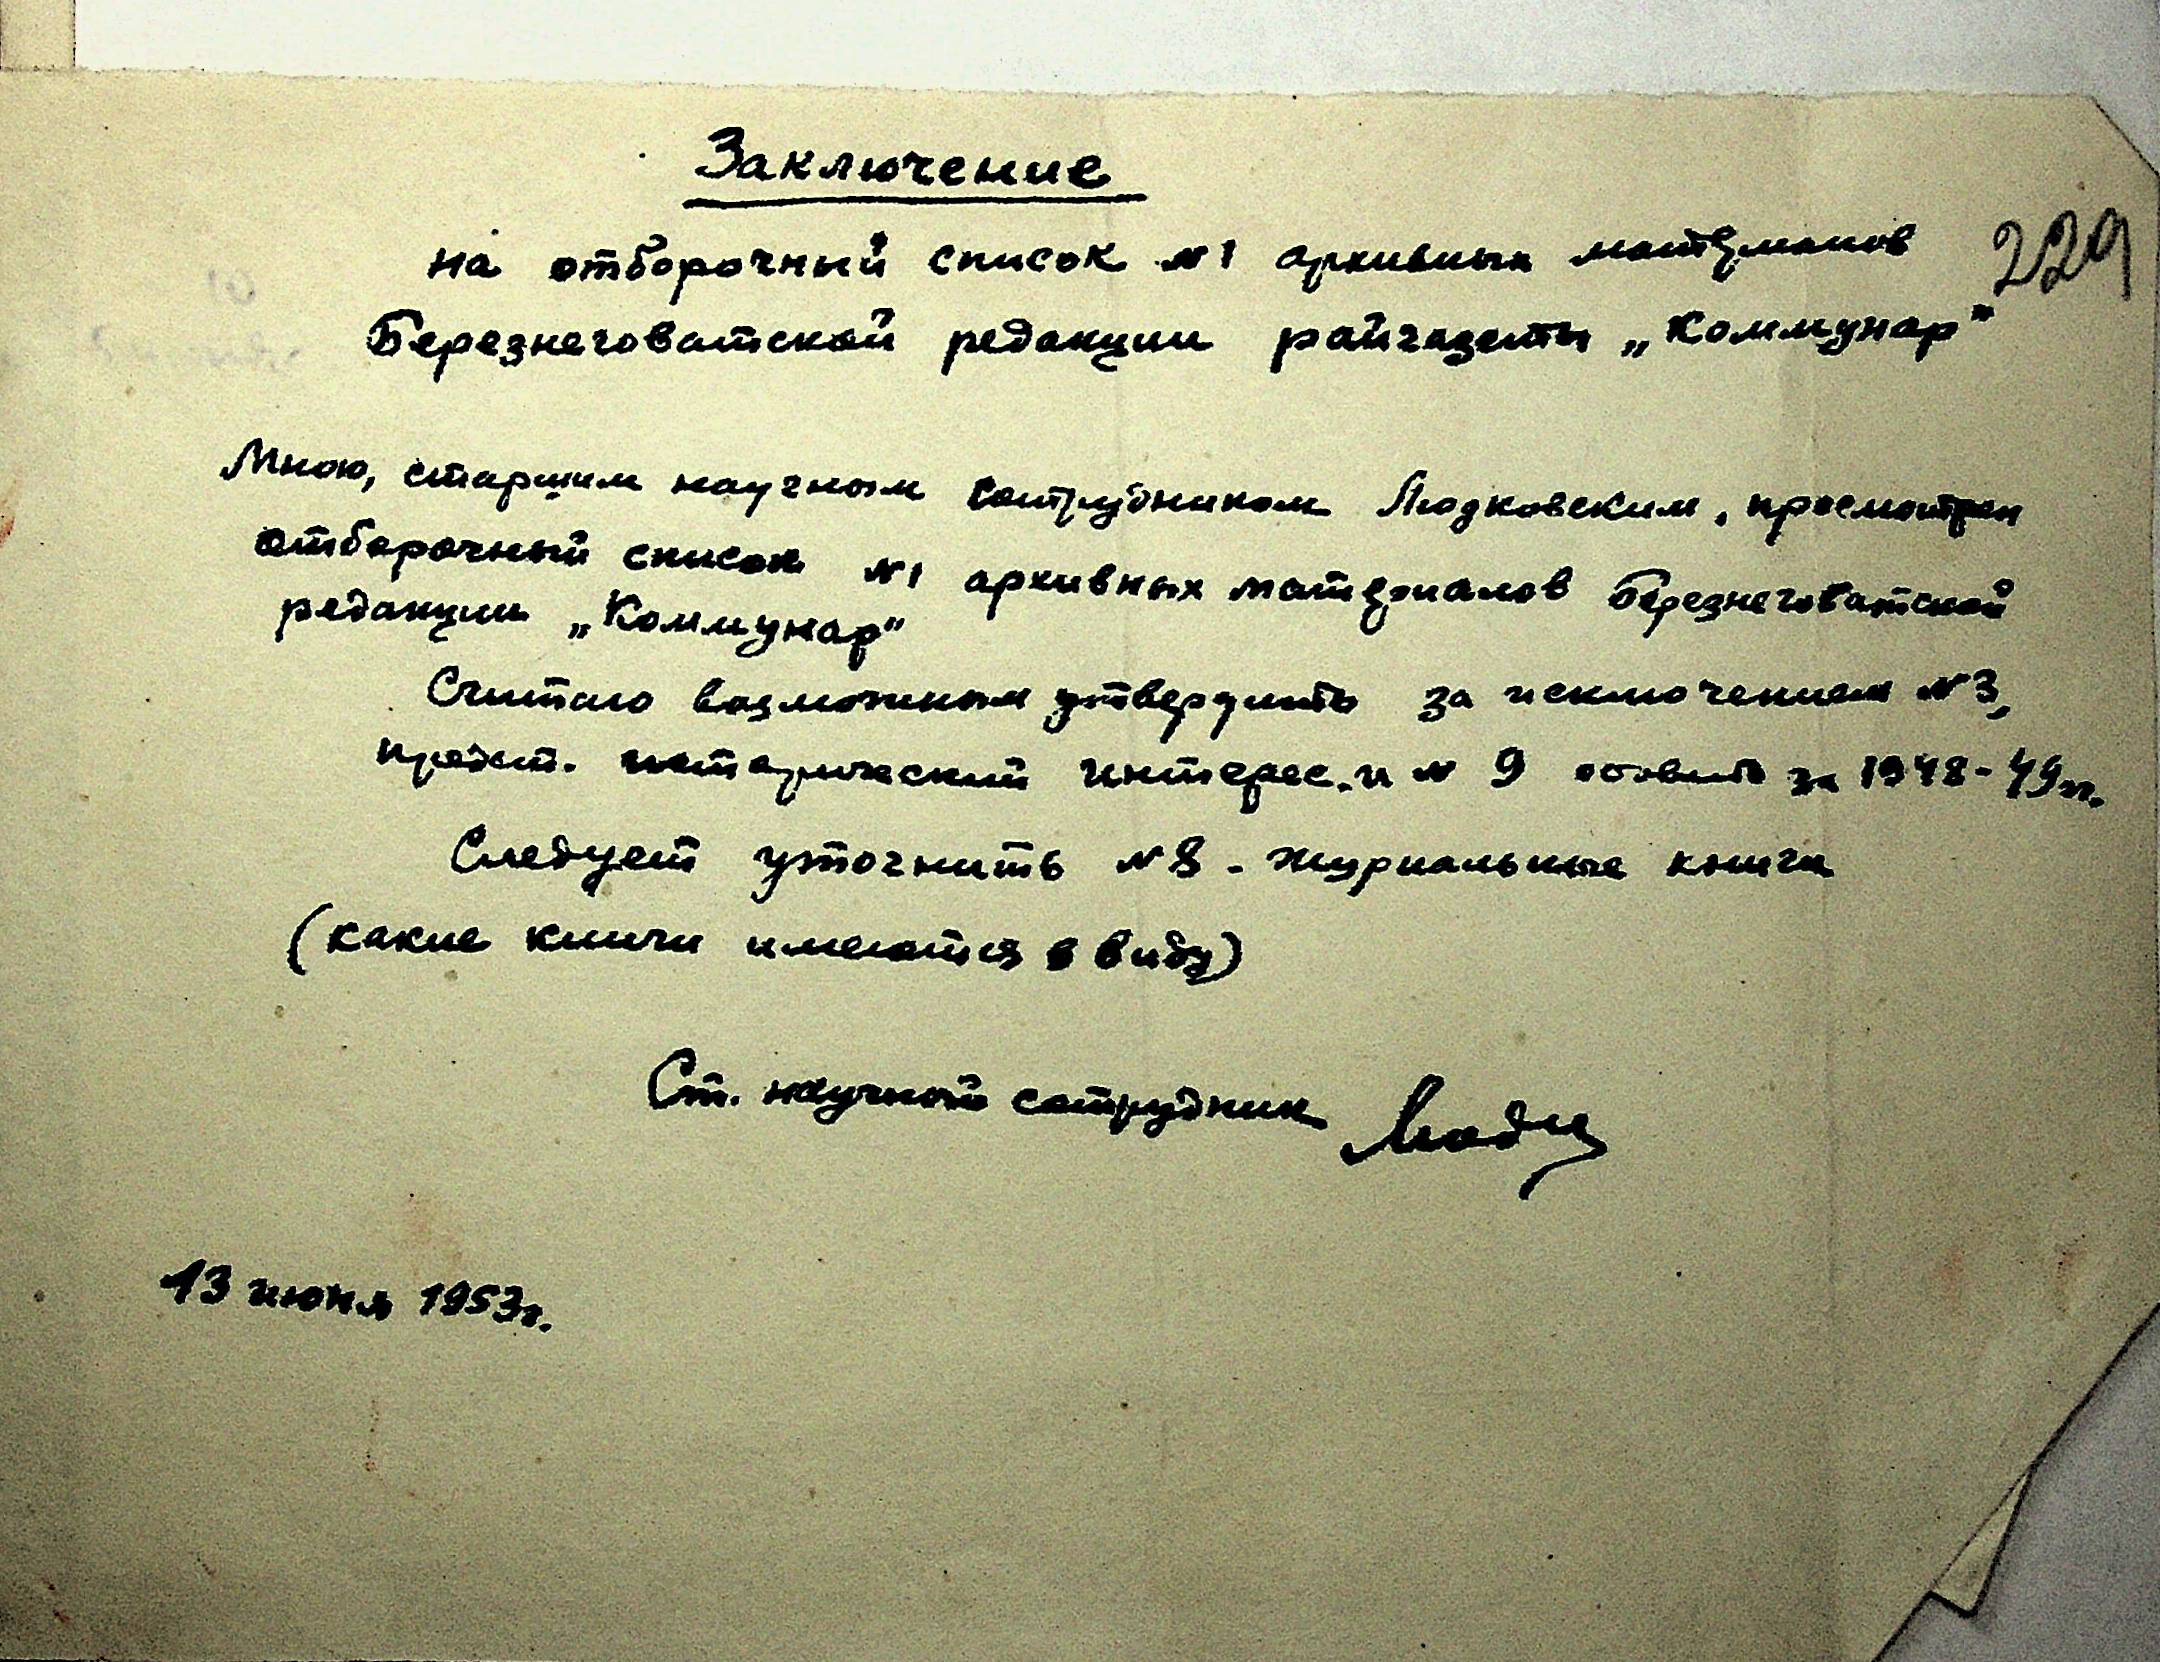 Заключение
на отборочный список №1 архивных материалов
229
Березнеговатской редакции райгазеты „Коммунар"
Мною, старшим научным сотрудником Людковским, просмотрен
отборочный список №1 архивных материалов Березнеговатской
редакции „Коммунар"
Считаю возможным утвердить за исключением №3,
предст. исторический интерес. и № 9 оставить за 1948-49гг.
Следует уточнить №8 - журнальные книги
(какие книги имеются в виду)
Ст. научный сотрудник
13 июня 1953г.